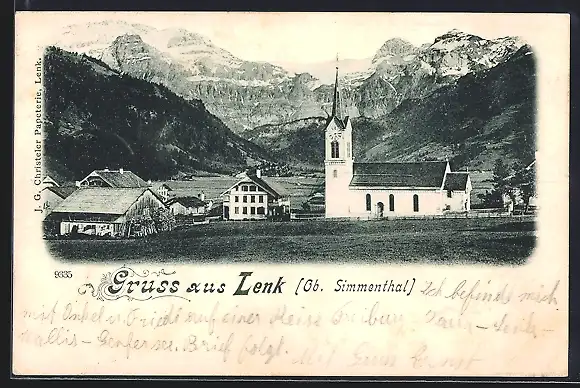 J. G. Christeler Papeterie, Lenk.
9335
Gruss aus Lenk (Ob. Simmenthal) Ich befinde mich
mit Onkel u. Friedi auf einer Reise
wallis - Genfersee. Brief folgt.
Mit Gruss Ernst